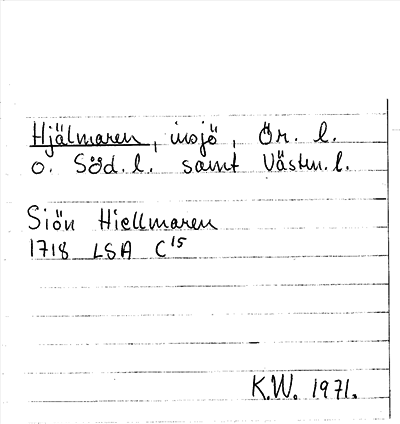 Hjälmaren, insjö, Ör. l.
o. Söd. l. samt Västm. l.
Siön Hiellmaren
1718 LSA C15
K.W. 1971.